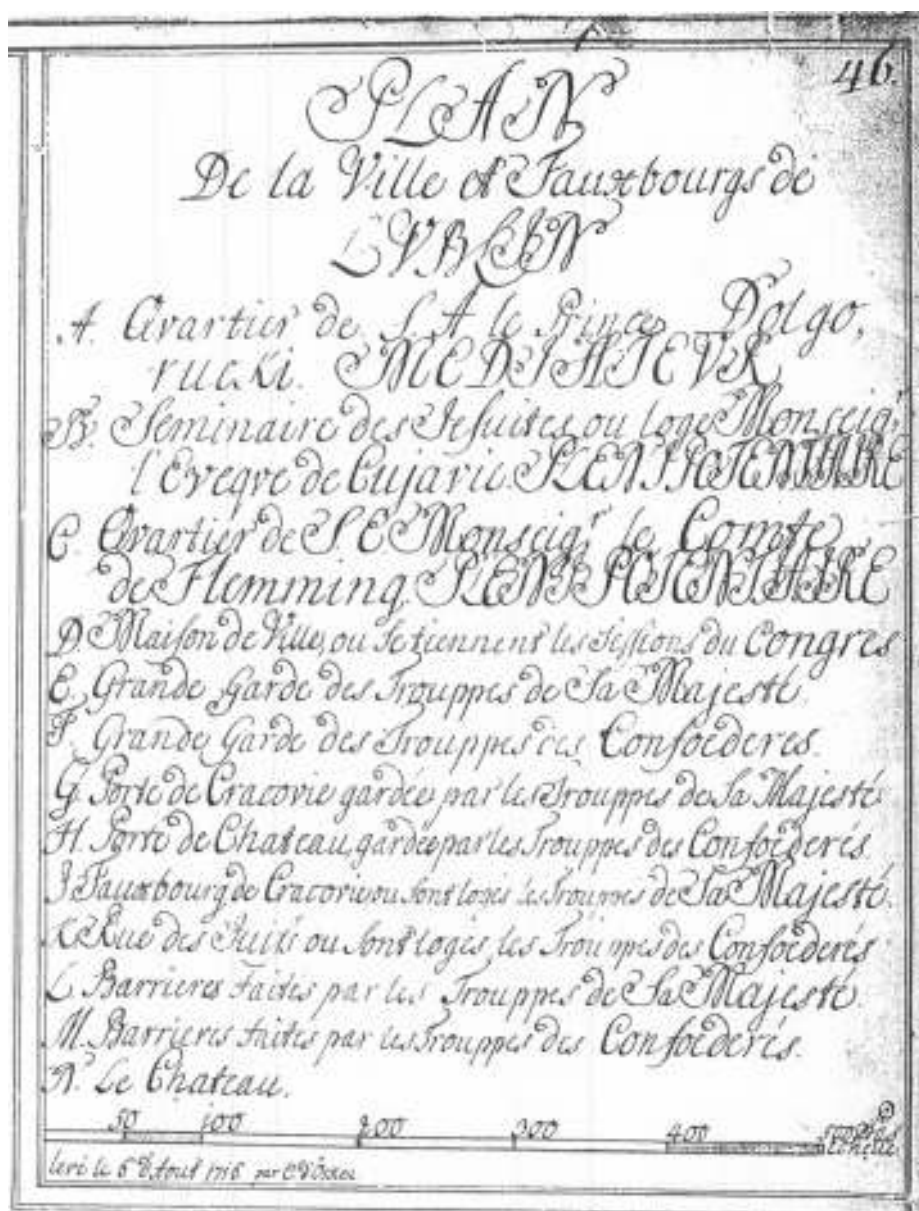 46.
PLAN
De la Ville et Fauxbourgs de
LVBLIN
A. Qvartier de S. A le Prince Dolgo,
rucki. MEDIATEVR
B. Seminaire des Jesuites, ou loge Monseigr
l'Eveqve de Cujavie. PLENIPOTENTIAIRE
C. Qvartier de S. E Monseigr le Comte
de Flemming. PLENIPOTENTIAIRE
D. Maison de Ville, ou se tiennent les Sessions du Congres
E. Grande Garde des Trouppes de Sa Majesté.
F. Grande Garde des Trouppes des Confoederes.
G. Porte de Cracovie gardée par les Trouppes de Sa Majesté
H. Porte de Chateau, gardée par les Trouppes des Confoederés.
J. Fauxbourg de Cracovie, ou sont logés les Trouppes de Sa Majesté.
K. Rue des Juifs ou sont logés, les Trouppes des Confoederés
L. Barrieres Faites par les Trouppes de Sa Majesté.
M. Barrieres faites par les Trouppes des Confoederés.
N. Le Chateau.
50 100 200 300 400
levé le 6 d'Aout 1716 par